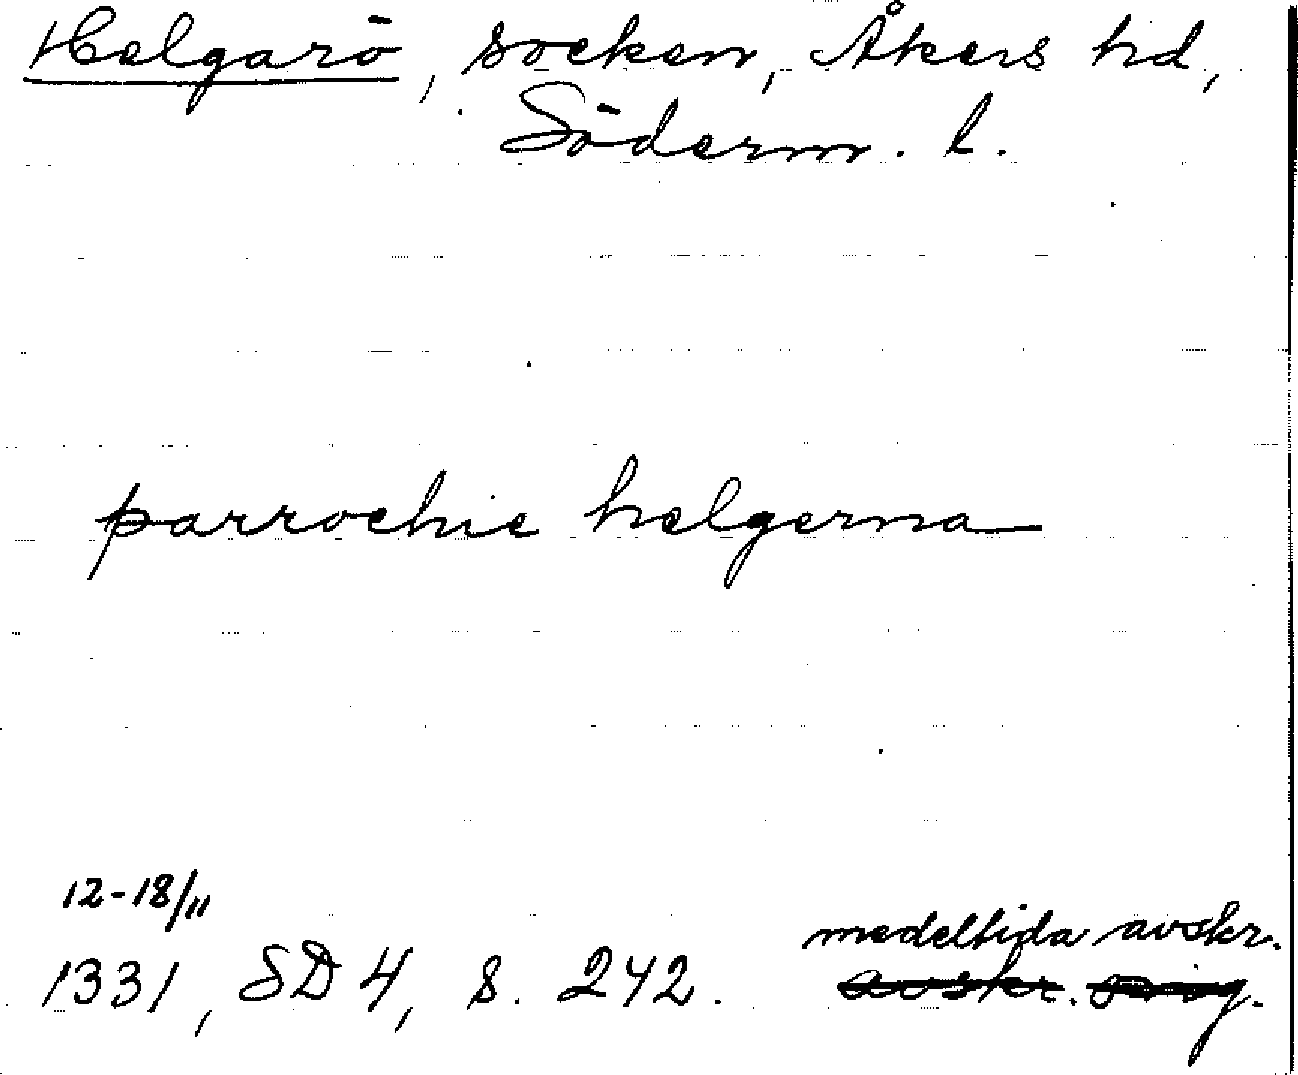 Helgarö, socken, Åkers hd,
Söderm. l.
parrochie helgerna
12-18/11
medeltida avskr.
1331, SD 4, s. 242. avskr. orig.